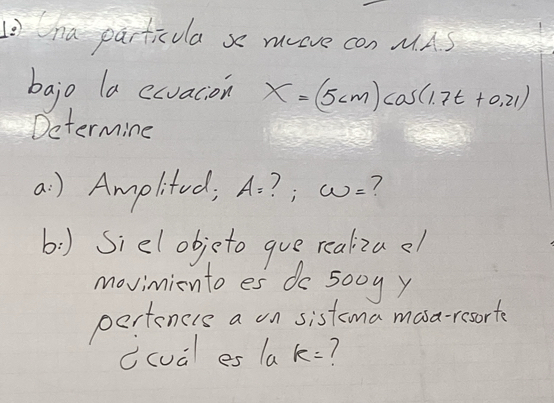 1:) Una partícula se mueve con M.A.S
bajo la ecuación X = (5cm)cos(1.7t + 0,21)
Determine
a:) Amplitud; A=?; ω=?
b:) Si el objeto que realiza el
movimiento es de 500g y
pertenece a un sistema masa-resorte
¿cuál es la k=?